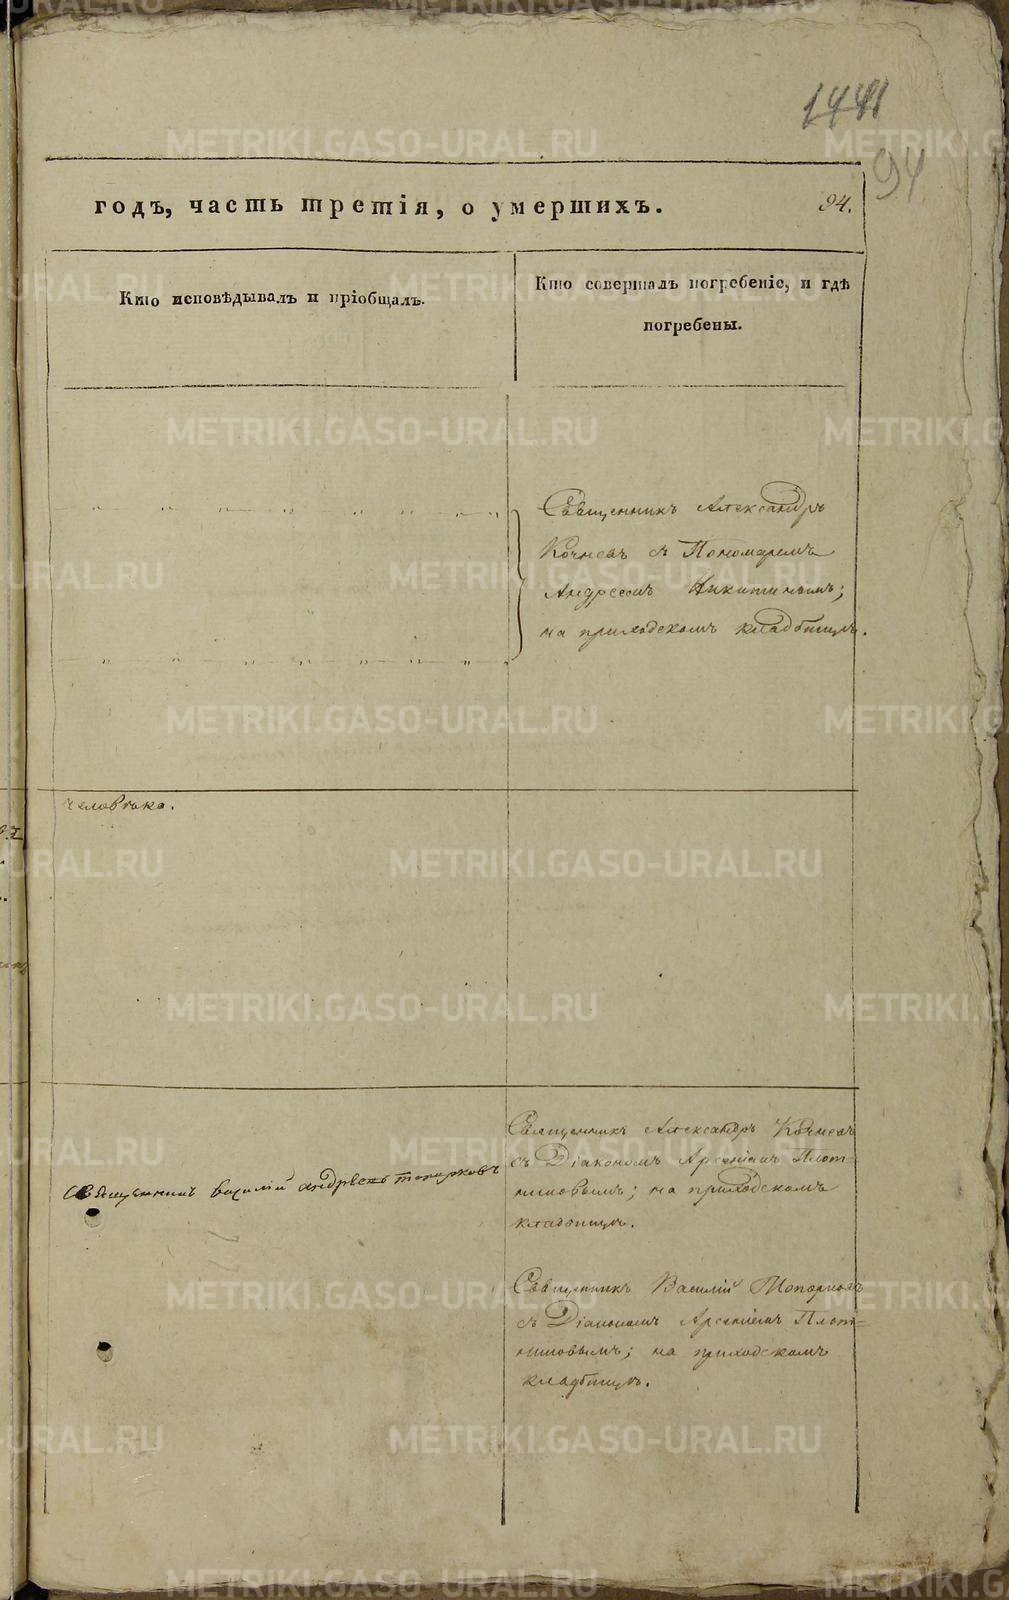 1441
94
годъ, часть третія, о умершихъ.
94.
Кто исповѣдывалъ и пріобщалъ.
Кто совершалъ погребеніе, и гдѣ
погребены.
Священникъ Александръ
Кочневъ съ Пономаремъ
Андреемъ Никитинымъ;
на приходскомъ кладбищѣ.
человѣка.
Священникъ Александръ Кочневъ
съ Діакономъ Арсеніемъ Плот=
никовымъ; на приходскомъ
кладбищѣ.
Священникъ василій андрѣевъ топорковъ
Священникъ Василій Топорковъ
съ Діакономъ Арсеніемъ Плот=
никовымъ; на приходскомъ
кладбищѣ.
METRIKI.GASO-URAL.RU